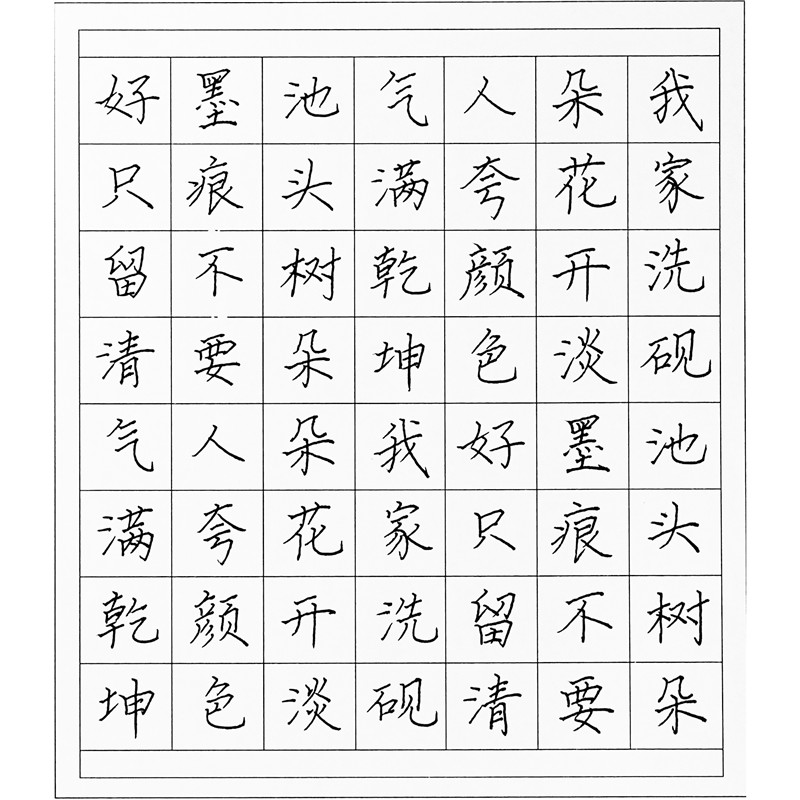 我家洗砚池头树朵
朵花开淡墨痕不要
人夸颜色好只留清
气满乾坤我家洗砚
池头树朵朵花开淡
墨痕不要人夸颜色
好只留清气满乾坤